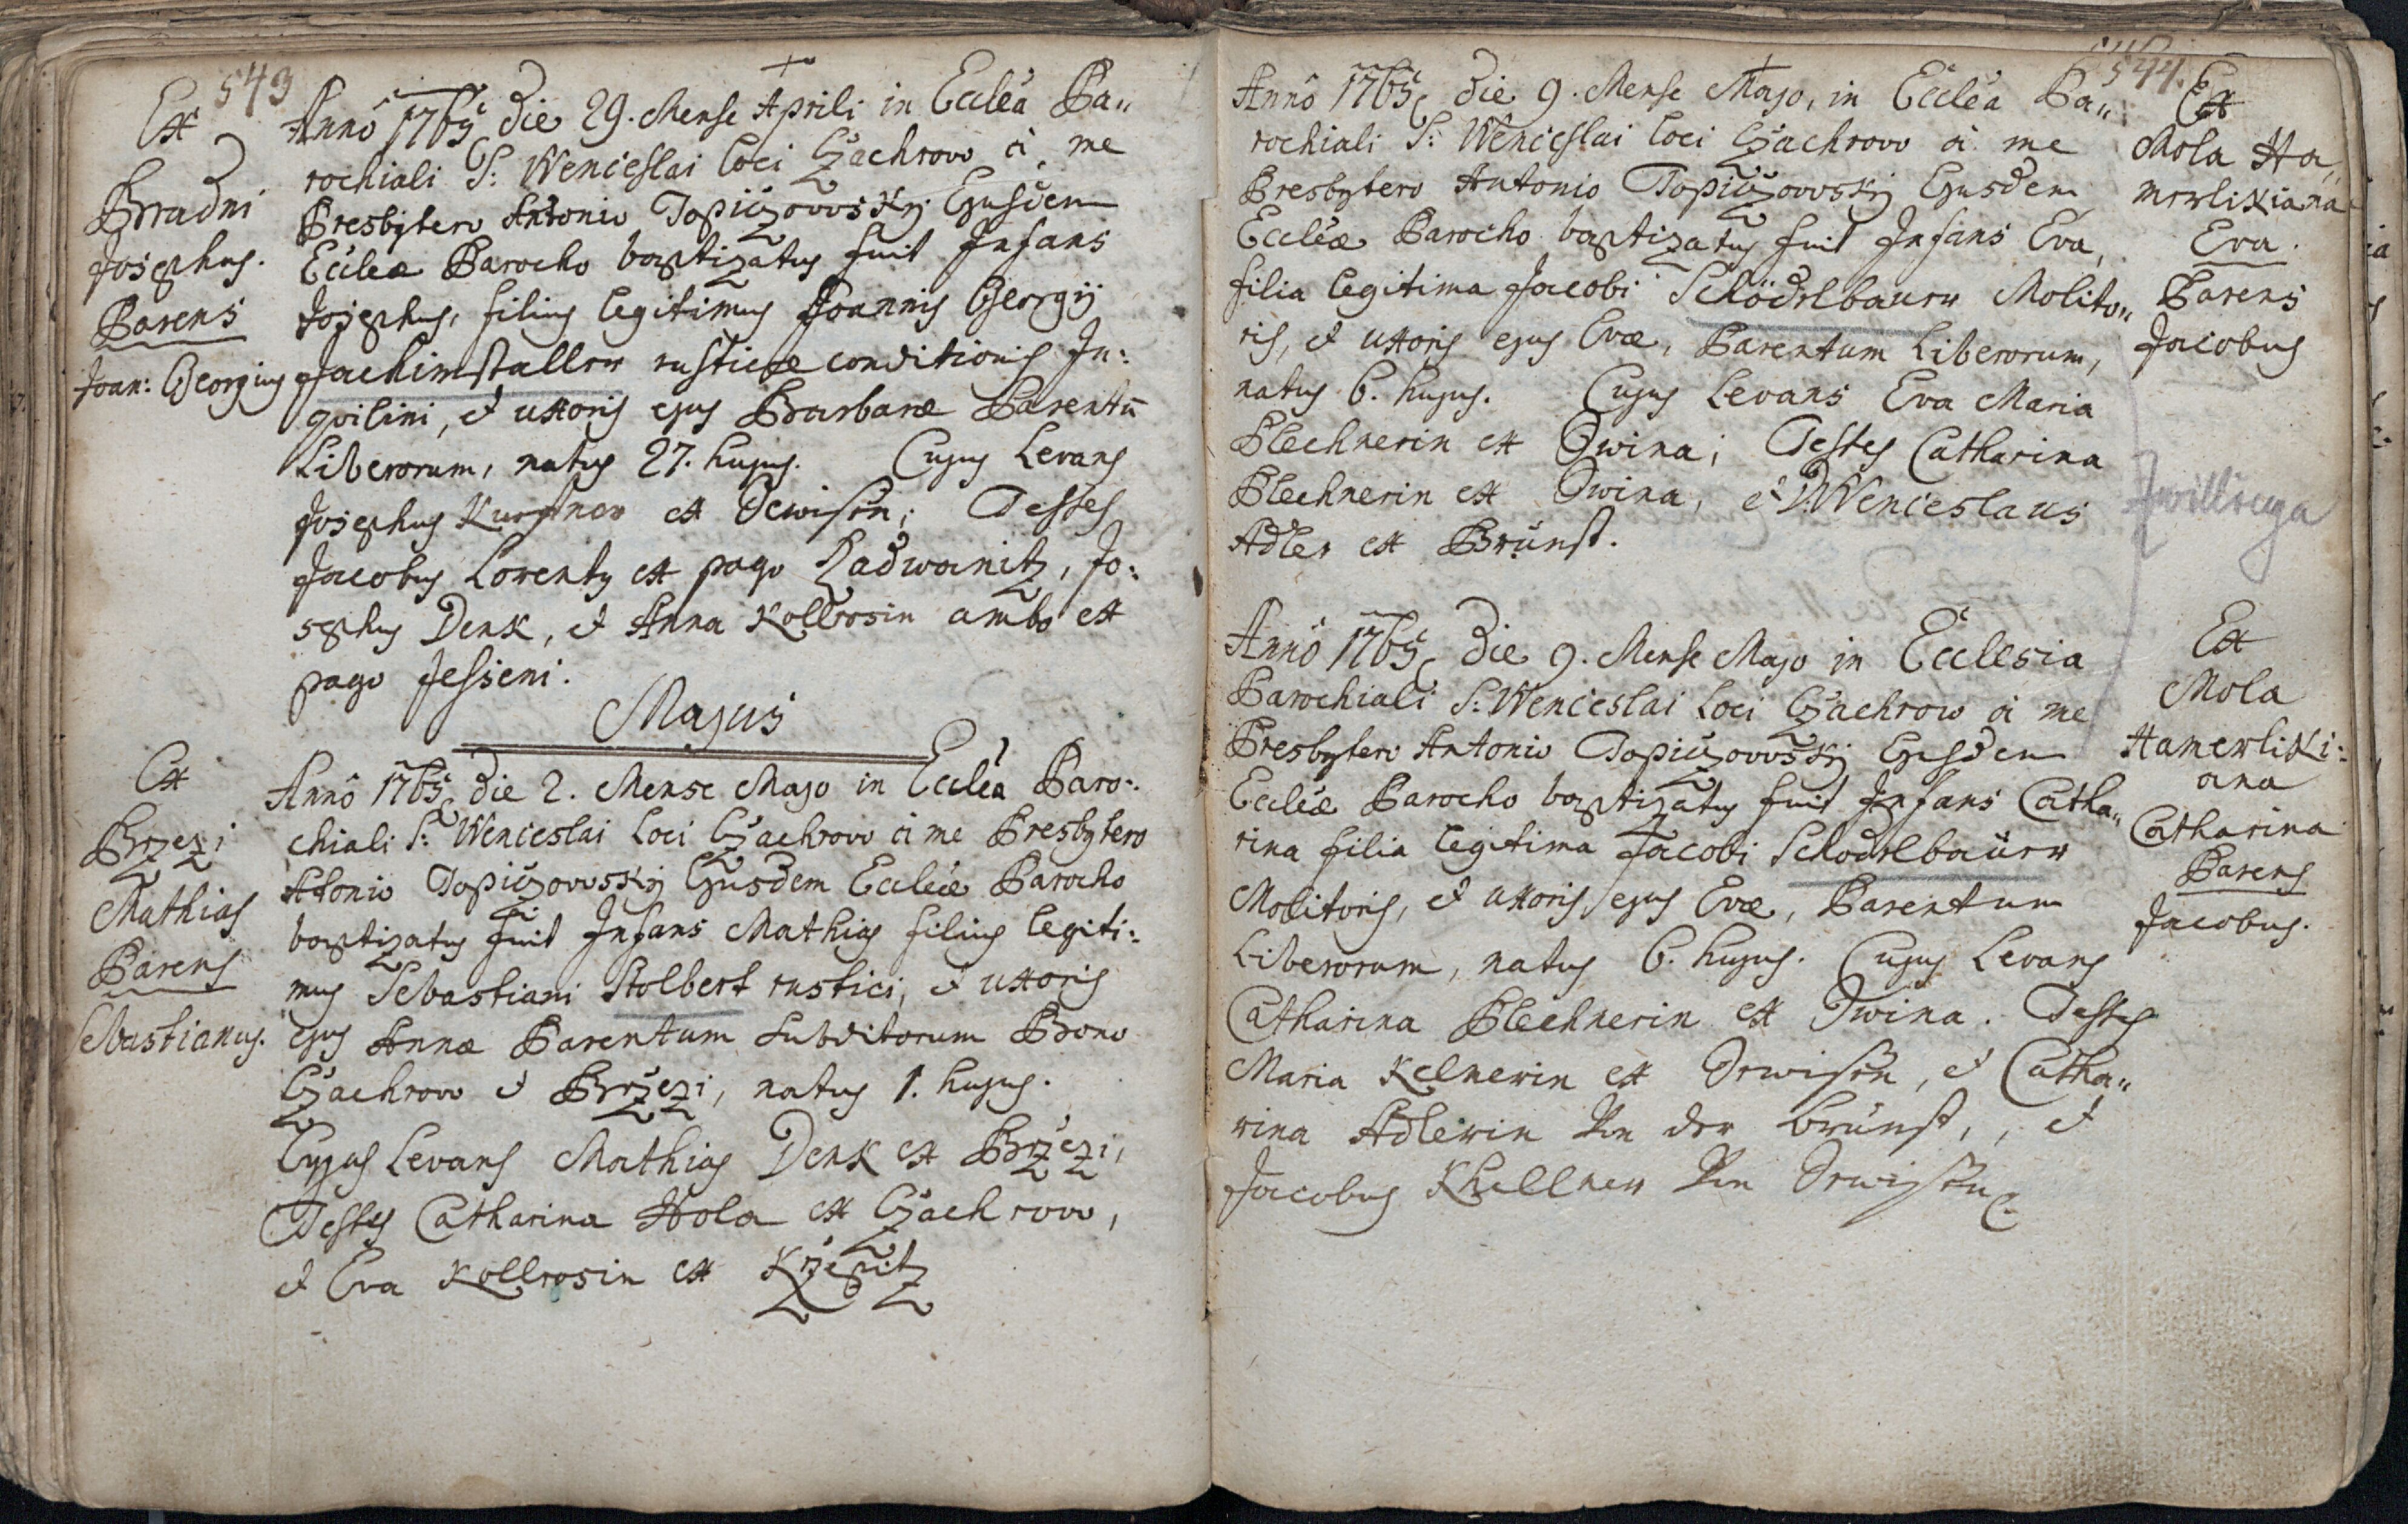 543
Ex
Bradni
Josephus.
Parens
Joan: Georgius
Annô 1765 die 29. Mense Aprili in Ecclêa Pa„
rochiali S: Wenceslai loci Czachrow à me
Presbytero Antonio Topiczowskÿ Ejusdem
Ecclêæ Parocho baptizatus fuit Infans
Josephus, filius legitimus Joannis Georgij
Jachimstaller rusticæ conditionis In:
quilini, et uxoris ejus Barbaræ Parentū
Liberorum, natus 27. hujus. Cujus Levans
Josephus ex Sewisen; Testes
Jacobus Lorentz ex pago Radwanitz, Jo:
sephus Denk, et Anna Kollrosin ambo ex
pago Jesseni.
Majus
Ex
Brzezi
Mathias
Parens
Sebastianus.
Annô 1765 die 2. Mense Majo in Ecclêa Paro:
chiali S: Wenceslai Loci Czachrow à me Presbytero
Atonio Topiczowskÿ Ejusdem Ecclêæ Parocho
baptizatus fuit Infans Mathias filius legiti:
mus Sebastiani Stolbert rustici, et uxoris
ejus Annæ Parentum Subditorum Bono
Czachrow et Brzezi, natus 1. hujus.
Cujus Levans Mathias Denk ex Brzezi,
Testes Catharina Hola ex Czachrow,
et Eva Kollrosin ex Krzepitz
544.
Annô 1765 die 9. Mense Majo, in Ecclêa Pa„
rochiali S: Wenceslai loci Czachrow à me
Presbytero Antonio Topiczowskÿ Ejusdem
Ecclêæ Parocho baptizatus fuit Infans Eva,
filia legitima Jacobi Schödrlbaurr Molito„
ris, et uxoris ejus Evæ, Parentum Liberorum,
natus 6. hujus. Cujus Levans Eva Maria
Plechnerin ex Swina; Testes Catharina
Plechnerin ex Swina, et Wenceslaus
Adler ex Brünst.
Ex
Mola Ha„
merlikiana
Eva.
Parens
Jacobus
Zwillinge
Annô 1765 die 9. Mense Majo in Ecclesia
Parochiali S: Wenceslai Loci Czachrow à me
Presbytero Antonio Topiczowskÿ Ejusdem
Ecclêæ Parocho baptizatus fuit Infans Catha„
rina filia legitima Jacobi Schodrlbaürr
Molitoris, et uxoris ejus Evæ, Parentum
Liberorum, natus 6. hujus. Cujus Levans
Catharina Plechnerin ex Swina. Testes
Maria Kelnerin ex Sewisen, et Catha„
rina Adlerin Von der Brünst,, et
Jacobus Khellner Von Sewisen
Ex
Mola
Hamerliki:
ana
Catharina
Parens
Jacobus.